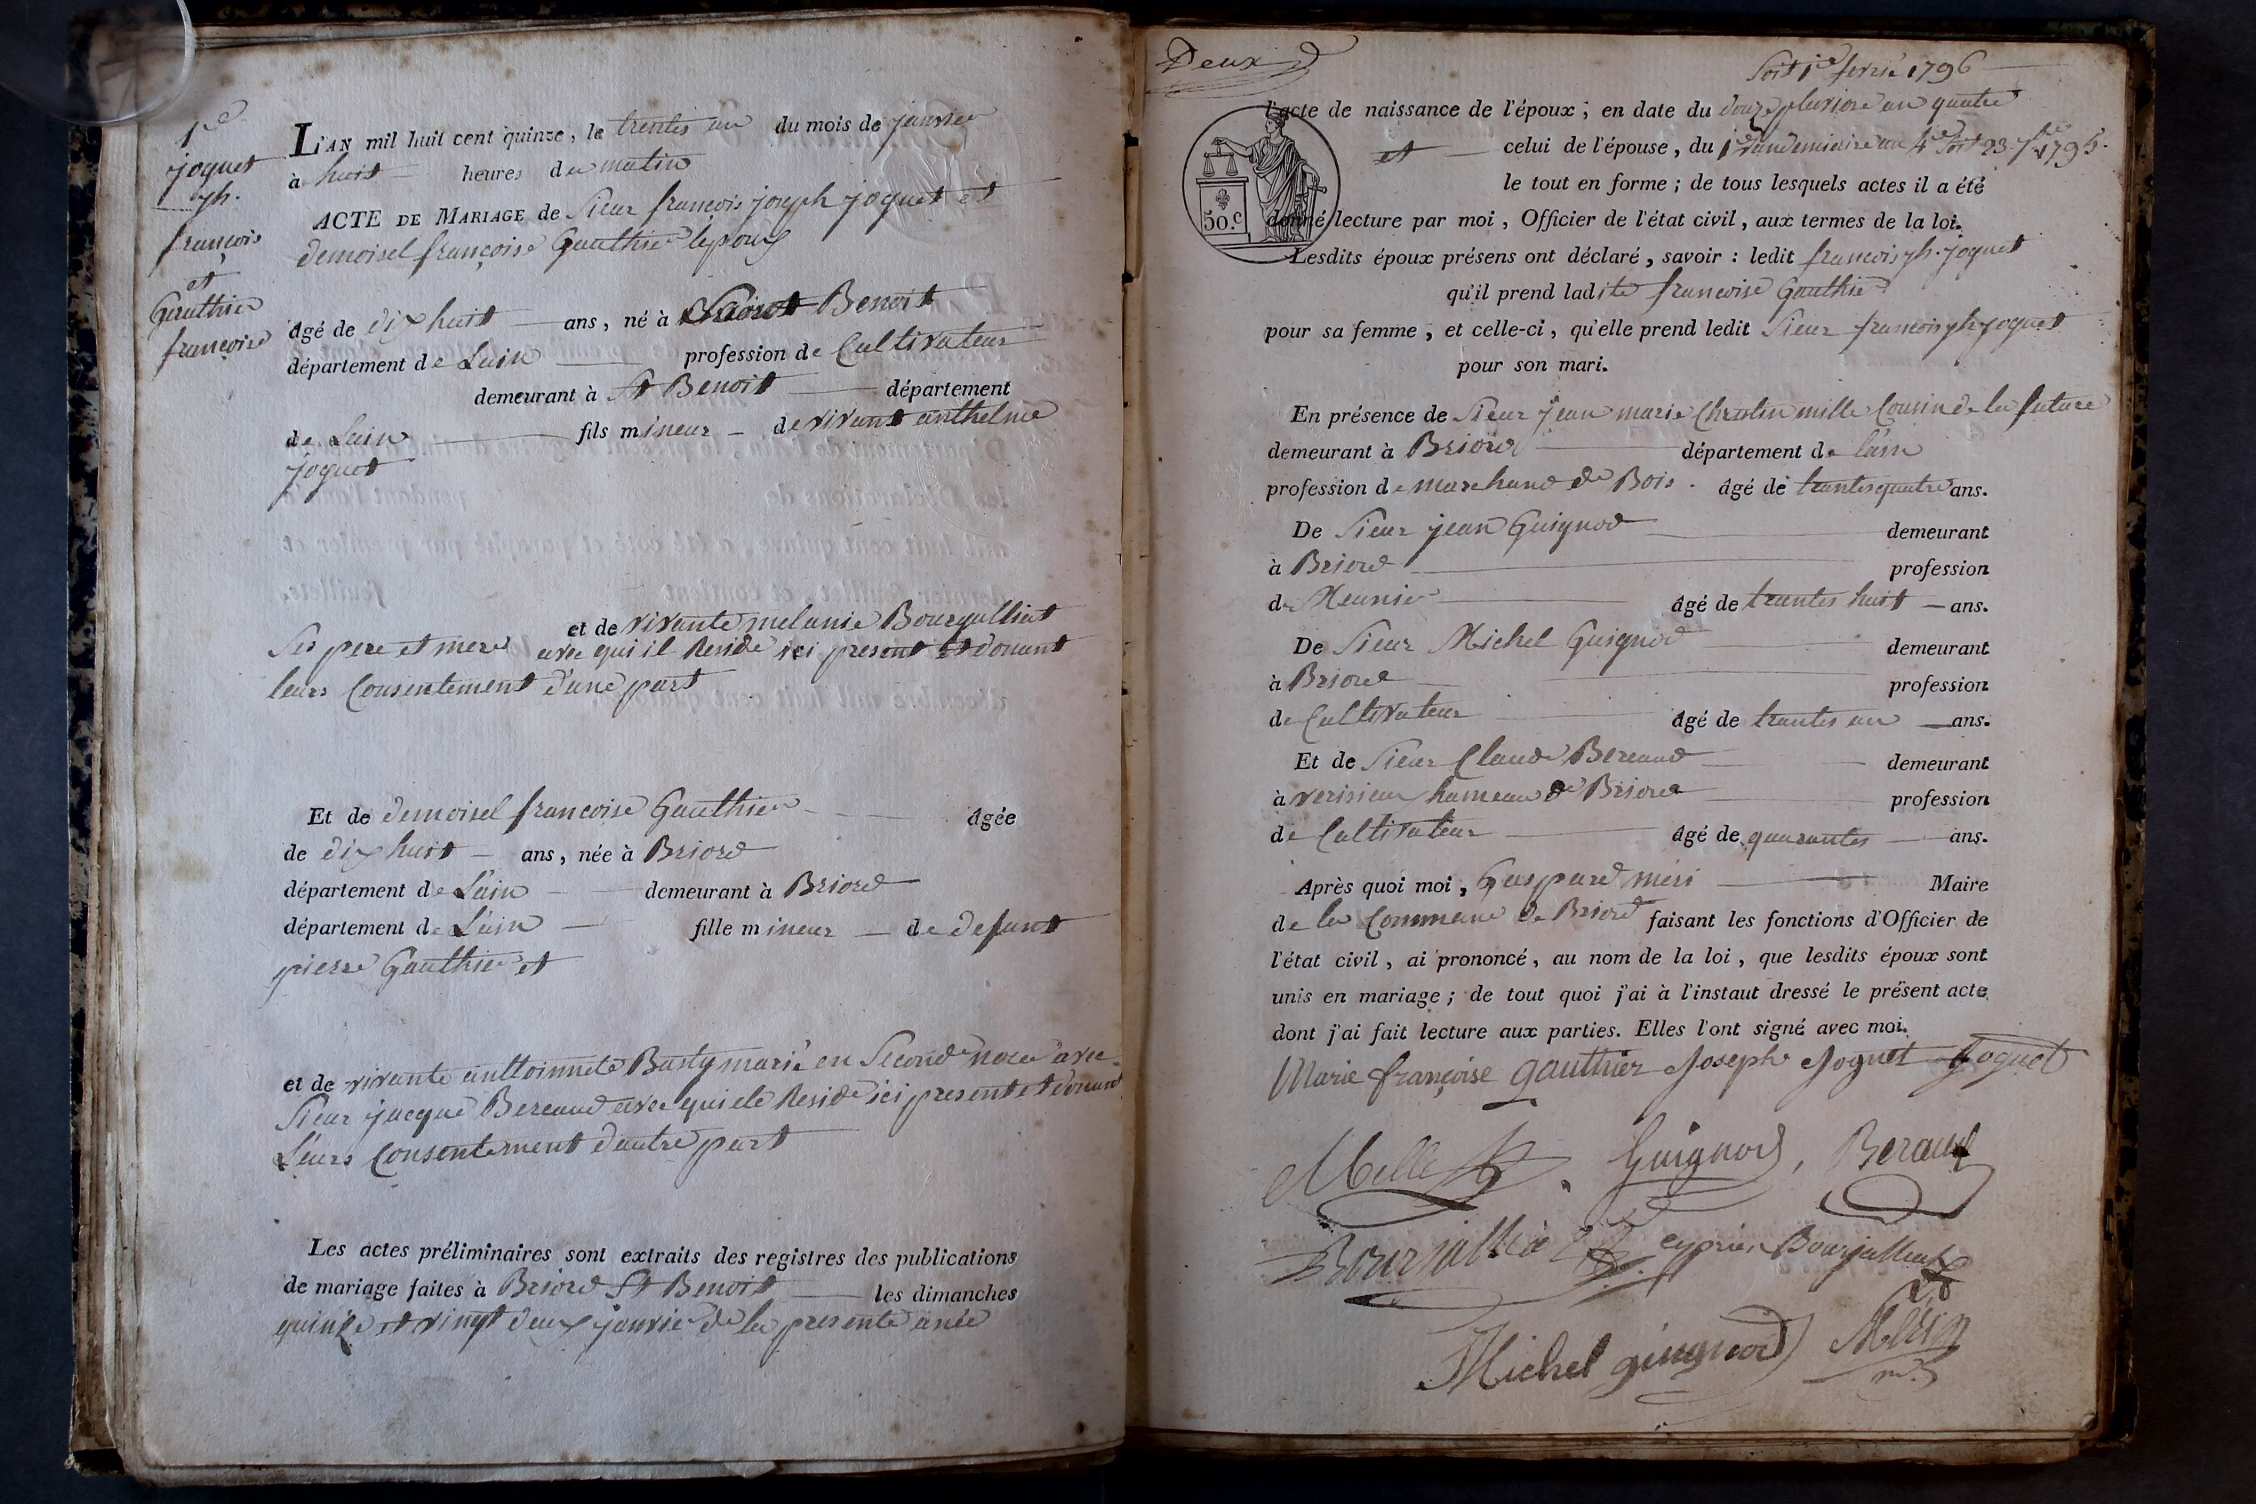 1er
joguet
jph.
françois
et
Gauthier
françoise
L'AN mil huit cent quinze, le trentes un du mois de janvier
à huit heures du matin
ACTE DE MARIAGE de Sieur françois joseph joguet et
demoisel françoise Gauthier lepoux
âgé de dix huit ans, né à Saint Benoit
département de Lain profession de Cultivateur
demeurant à St Benoit département
de Lain fils mineur de vivant anthelme
joguet
et de vivante melanie Bourgalliat
Ses pere et mere avec qui il Reside ici present et donant
leurs Consentement d'une part
Et de demoisel francoise Gauthier âgée
de dix huit ans, née à Briord
département de Lain demeurant à Briord
département de Lain fille mineur de defunt
pierre Gauthier et
et de vivante anttoinnete Busty marié en Seconde noce avec
Sieur jacque Beraud avec qui ele Reside ici present et donant
Leurs Consentement d'autre part
Les actes préliminaires sont extraits des registres des publications
de mariage faites à Briord St Benoit les dimanches
quinze et vingt deux janvier de la presente anée
Deux
Soit 1er fevrié 1796
l'acte de naissance de l'époux; en date du douze pluviose an quatre
et celui de l'épouse, du 1er vandemiaire an 4e soit 23 7bre 1795.
le tout en forme; de tous lesquels actes il a été
50.c
donné lecture par moi, Officier de l'état civil, aux termes de la loi.
Lesdits époux présens ont déclaré, savoir: ledit francois jph. joguet
qu'il prend ladite francoise Gauthier
pour sa femme, et celle-ci, qu'elle prend ledit Sieur francois jph joguet
pour son mari.
En présence de Sieur jean marie mille Cousin de la future
demeurant à Briord département de l'ain
profession de marchand de Bois. âgé de trantes quatre ans.
De Sieur jean Guignod demeurant
à Briord profession
de Meunier âgé de trantes huit ans.
De Sieur Michel Guignod demeurant
à Briord profession
de Cultivateur âgé de trantes un ans.
Et de Sieur Claude Beraud demeurant
à verisieux hameau de Briord profession
de Cultivateur âgé de quarantes ans.
Après quoi moi, Gaspard méri Maire
de la Commune de Briord faisant les fonctions d'Officier de
l'état civil, ai prononcé, au nom de la loi, que lesdits époux sont
unis en mariage; de tout quoi j'ai à l'instaut dressé le présent acte
dont j'ai fait lecture aux parties. Elles l'ont signé avec moi.
Marie françoise gauthier Joseph Joguet Joguet
Mille Guignod, Beraud
cyprien Bourjalliat
Michel guignod Mérin